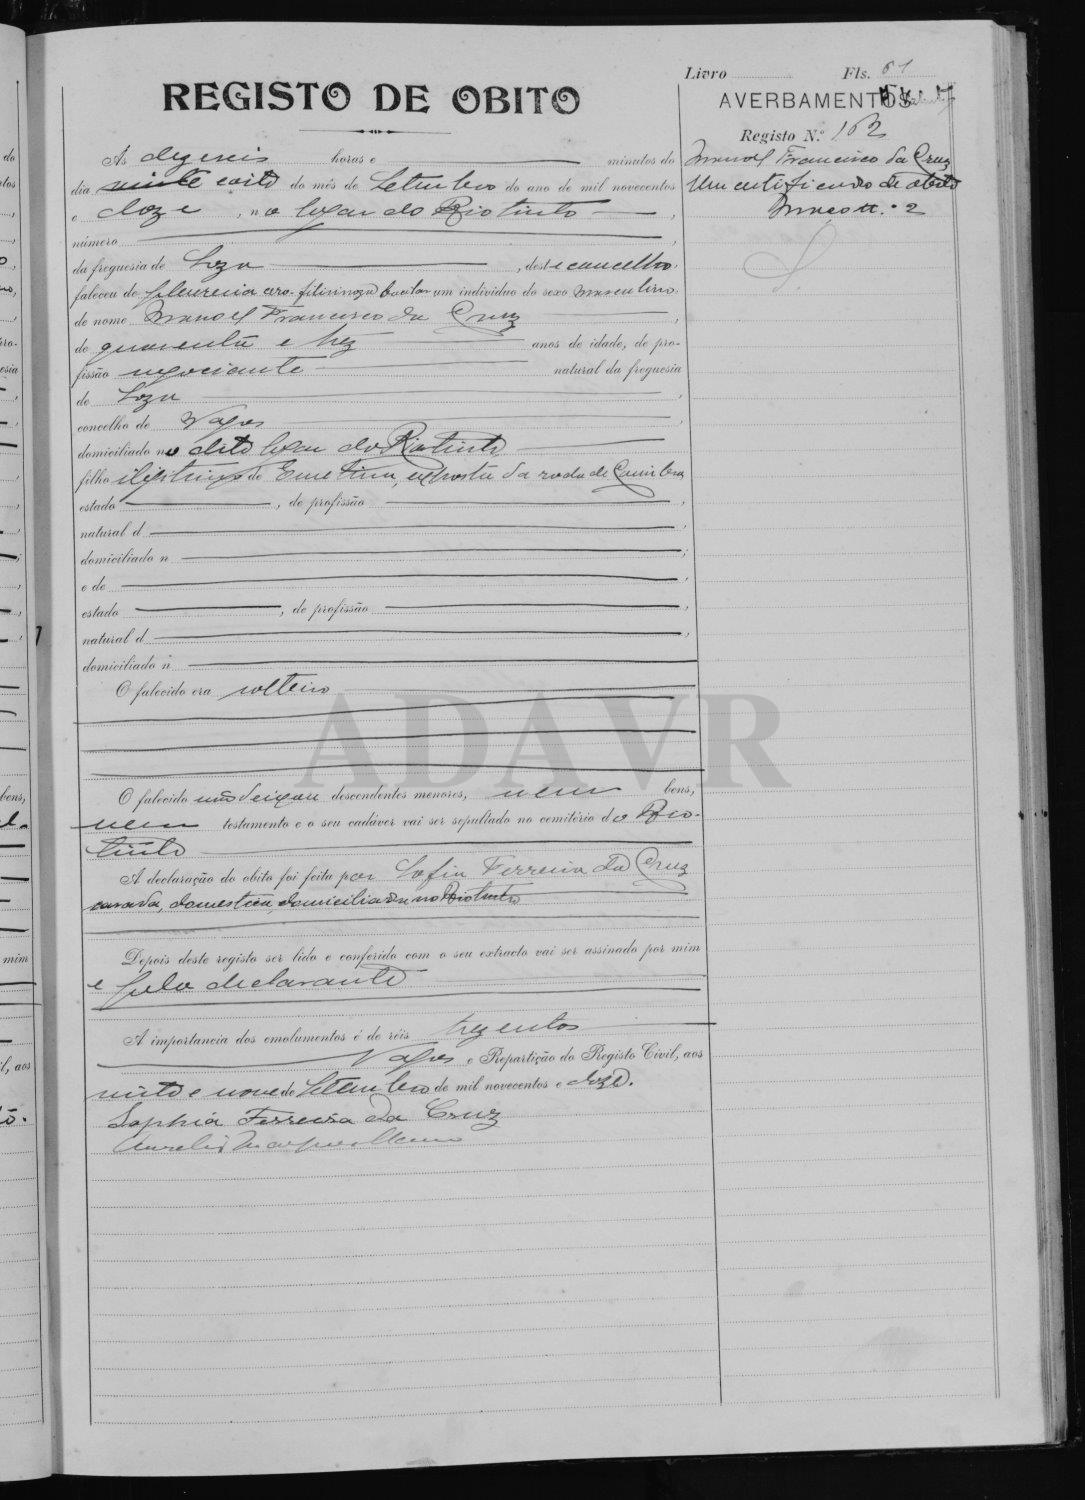 Livro Fls. 61
REGISTO DE OBITO
AVERBAMENTOS
Registo N.º 162
Manoel Francisco da Cruz
Um certificado de obito
Maço n.º 2
Ás dezeseis horas e minutos do
dia vinte e oito do mês de Setembro do ano de mil novecentos
e doze, no logar do Riotinto,
número
da freguesia de Soza, deste concelho,
faleceu de um individuo do sexo masculino
de nome Manoel Francisco da Cruz,
de quarenta e trez anos de idade, de pro-
fissão negociante natural da freguesia
de Soza,
concelho de Vagos,
domiciliado no dito logar do Riotinto,
filho ilegitimo de exposta da roda de Coimbra
estado, de profissão,
natural d,
domiciliado n,
e de,
estado, de profissão,
natural d,
domiciliado n
O falecido era solteiro
O falecido não deixou descendentes menores, nem bens,
nem testamento e o seu cadáver vai ser sepultado no cemitério do Rio-
tinto
A declaração do obito foi feita por Sofia Ferreira da Cruz
casada, domestica, domiciliada no Riotinto
Depois deste registo ser lido e conferido com o seu extracto vai ser assinado por mim
e pela declarante
A importancia dos emolumentos é de réis trezentos
Vagos e Repartição do Registo Civil, aos
vinte e nove de Setembro de mil novecentos e doze.
Sophia Ferreira da Cruz
ADAVR